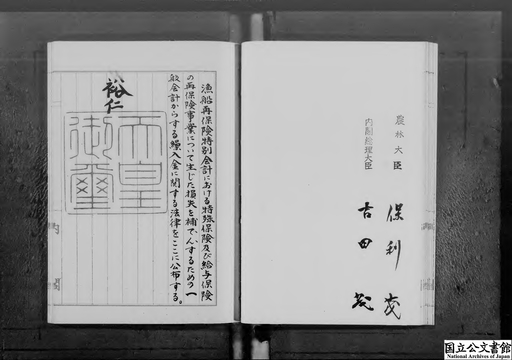 漁船再保険特別会計における特殊保険及び給与保険
の再保険事業について生じた損失を補てんするための一
般会計からする繰入金に関する法律をここに公布する。
裕仁
天皇
御璽
農林大臣
保利茂
内閣総理大臣
吉田茂
国立公文書館
National Archives of Japan